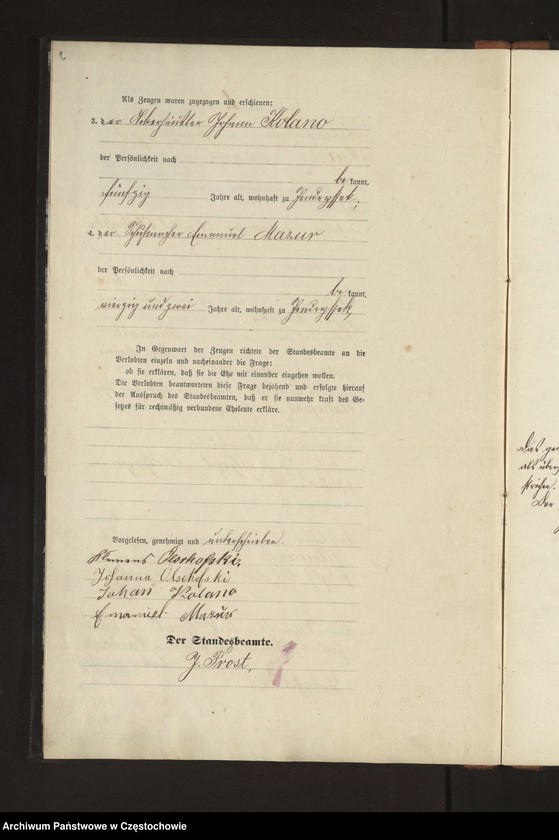 Als Zeugen waren zugezogen und erschienen:
3. der Ackerhäusler Johann Kolano
der Persönlichkeit nach
bekannt,
fünfzig Jahre alt, wohnhaft zu Jendryssek;
4. der Schuhmacher Emanuel Mazur
der Persönlichkeit nach
bekannt,
vierzig und zwei Jahre alt, wohnhaft zu Jendryssek,
In Gegenwart der Zeugen richtete der Standesbeamte an die
Verlobten einzeln und nacheinander die Frage:
ob sie erklären, daß sie die Ehe mit einander eingehen wollen.
Die Verlobten beantworteten diese Frage bejahend und erfolgte hierauf
der Ausspruch des Standesbeamten, daß er sie nunmehr kraft des Ge-
setzes für rechtmäßig verbundene Eheleute erkläre.
Vorgelesen, genehmigt und unterschrieben.
Klemens Olschofski.
Johanna Olschofski
Johan Kolano
Emanuel Mazur
Der Standesbeamte.
J. Prost,
als über
strichen.
Der
Archiwum Państwowe w Częstochowie